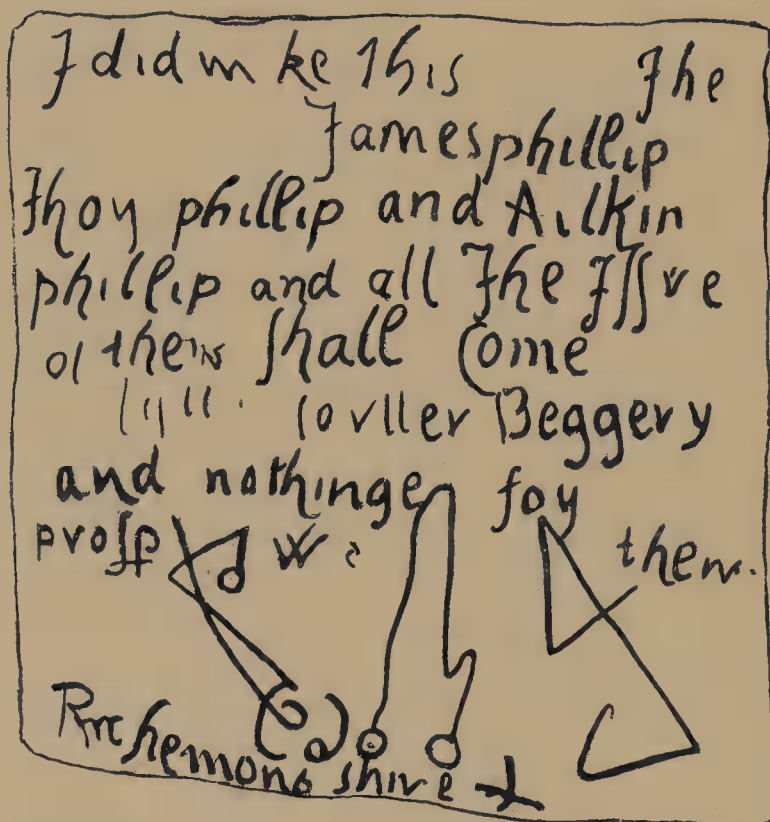 I did m ke This The
James phillip
Ihoy phillip and Ailkin
phillip and all The Issve
of them shall Come
Beggery
and nothinge foy
prossp them.
shire